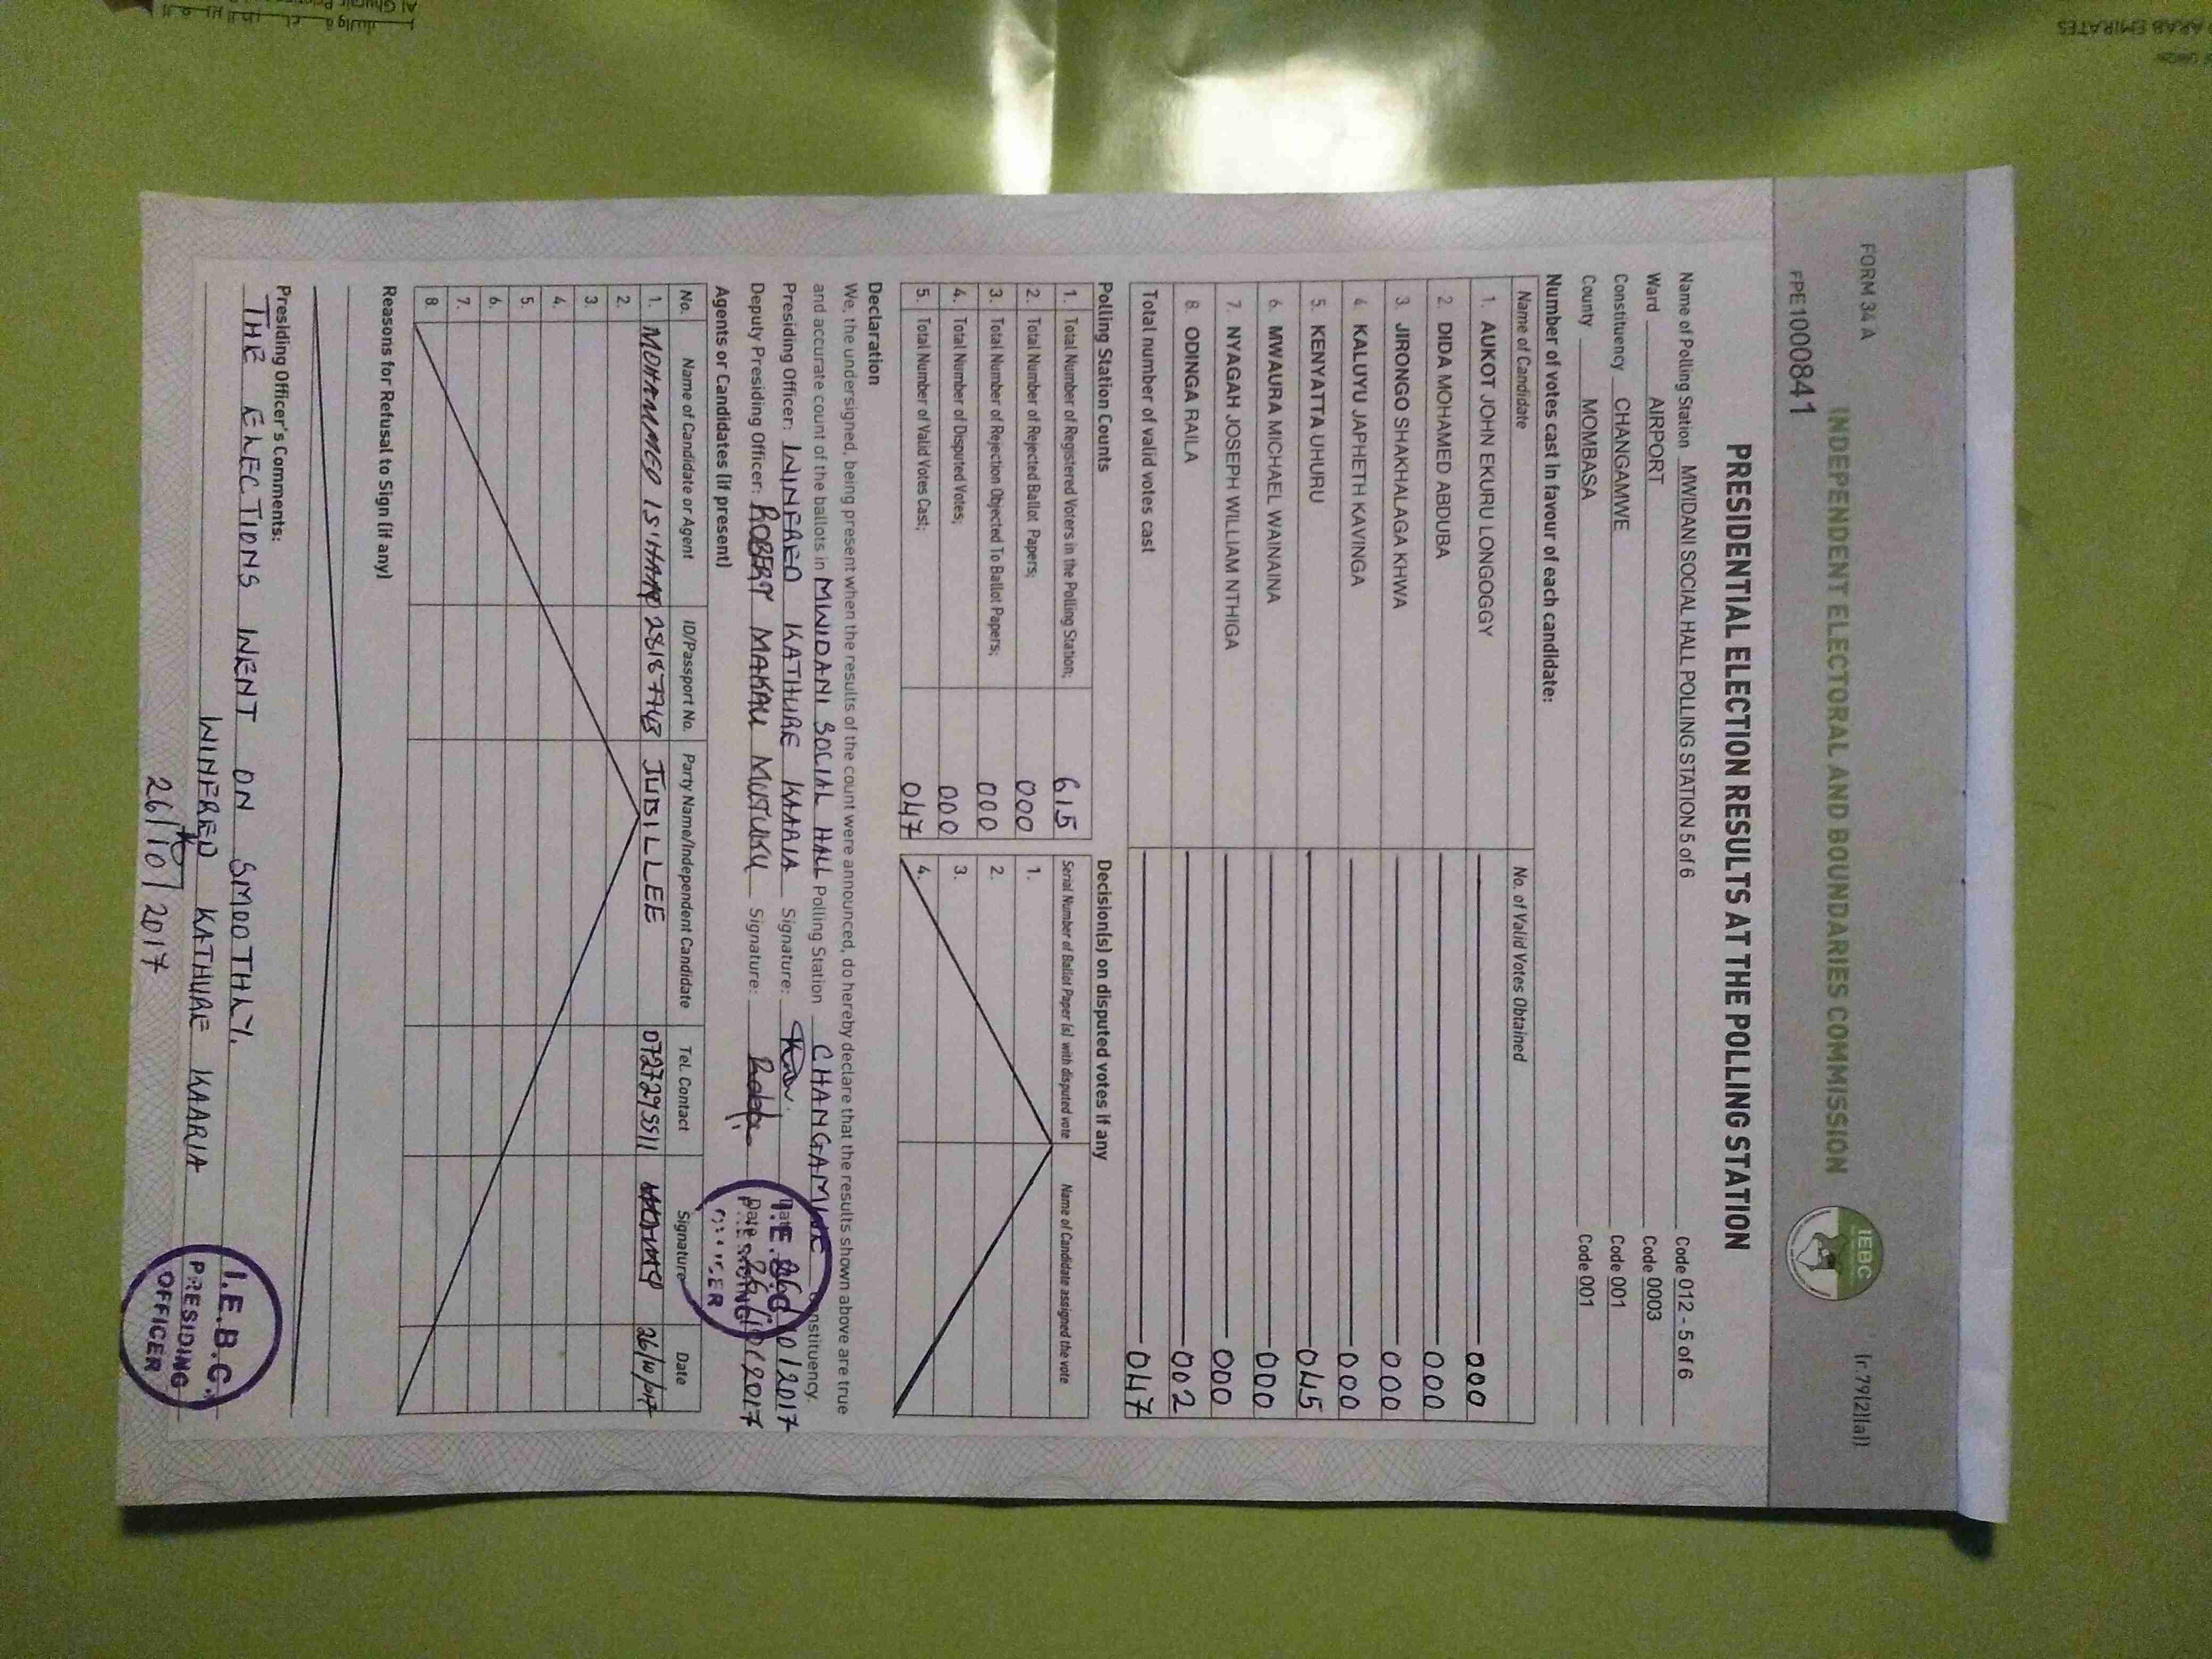 FORM 34 A
(r.79(2)(a))
INDEPENDENT ELECTORAL AND BOUNDARIES COMMISSION
IEBC
FPE1000841
PRESIDENTIAL ELECTION RESULTS AT THE POLLING STATION
Name of Polling Station MWIDANI SOCIAL HALL POLLING STATION 5 of 6 Code 012 - 5 of 6
Ward AIRPORT Code 0003
Constituency CHANGAMWE Code 001
County MOMBASA Code 001
Number of votes cast in favour of each candidate:
Name of Candidate No. of Valid Votes Obtained
1. AUKOT JOHN EKURU LONGOGGY 000
2. DIDA MOHAMED ABDUBA 000
3. JIRONGO SHAKHALAGA KHWA 000
4. KALUYU JAPHETH KAVINGA 000
5. KENYATTA UHURU 045
6. MWAURA MICHAEL WAINAINA 000
7. NYAGAH JOSEPH WILLIAM NTHIGA 000
8. ODINGA RAILA 002
Total number of valid votes cast 047
Polling Station Counts
1. Total Number of Registered Voters in the Polling Station; 615
2. Total Number of Rejected Ballot Papers; 000
3. Total Number of Rejection Objected To Ballot Papers; 000
4. Total Number of Disputed Votes; 000
5. Total Number of Valid Votes Cast; 047
Decision(s) on disputed votes if any
Serial Number of Ballot Paper (s) with disputed vote Name of Candidate assigned the vote
1.
2.
3.
4.
Declaration
We, the undersigned, being present when the results of the count were announced, do hereby declare that the results shown above are true
and accurate count of the ballots in MWIDANI SOCIAL HALL Polling Station CHANGAMWE Constituency.
Presiding Officer: WINFRED KATHURE KAARIA Signature: Date 26/10/2017
Deputy Presiding Officer: ROBERT MAKAU MUTUKU Signature: Date 26/10/2017
I.E.B.C
PRESIDING
OFFICER
Agents or Candidates (if present)
No. Name of Candidate or Agent ID/Passport No. Party Name/Independent Candidate Tel. Contact Signature Date
1. MOHAMMED 28187748 JUBILLEE 0727295511 26/10/017
2.
3.
4.
5.
6.
7.
8.
Reasons for Refusal to Sign (if any)
Presiding Officer's Comments:
THE ELECTIONS WENT ON SMOOTHLY.
WINFRED KATHURE KAARIA
26/10/2017
I.E.B.C.
PRESIDING
OFFICER
ARAB EMIRATES